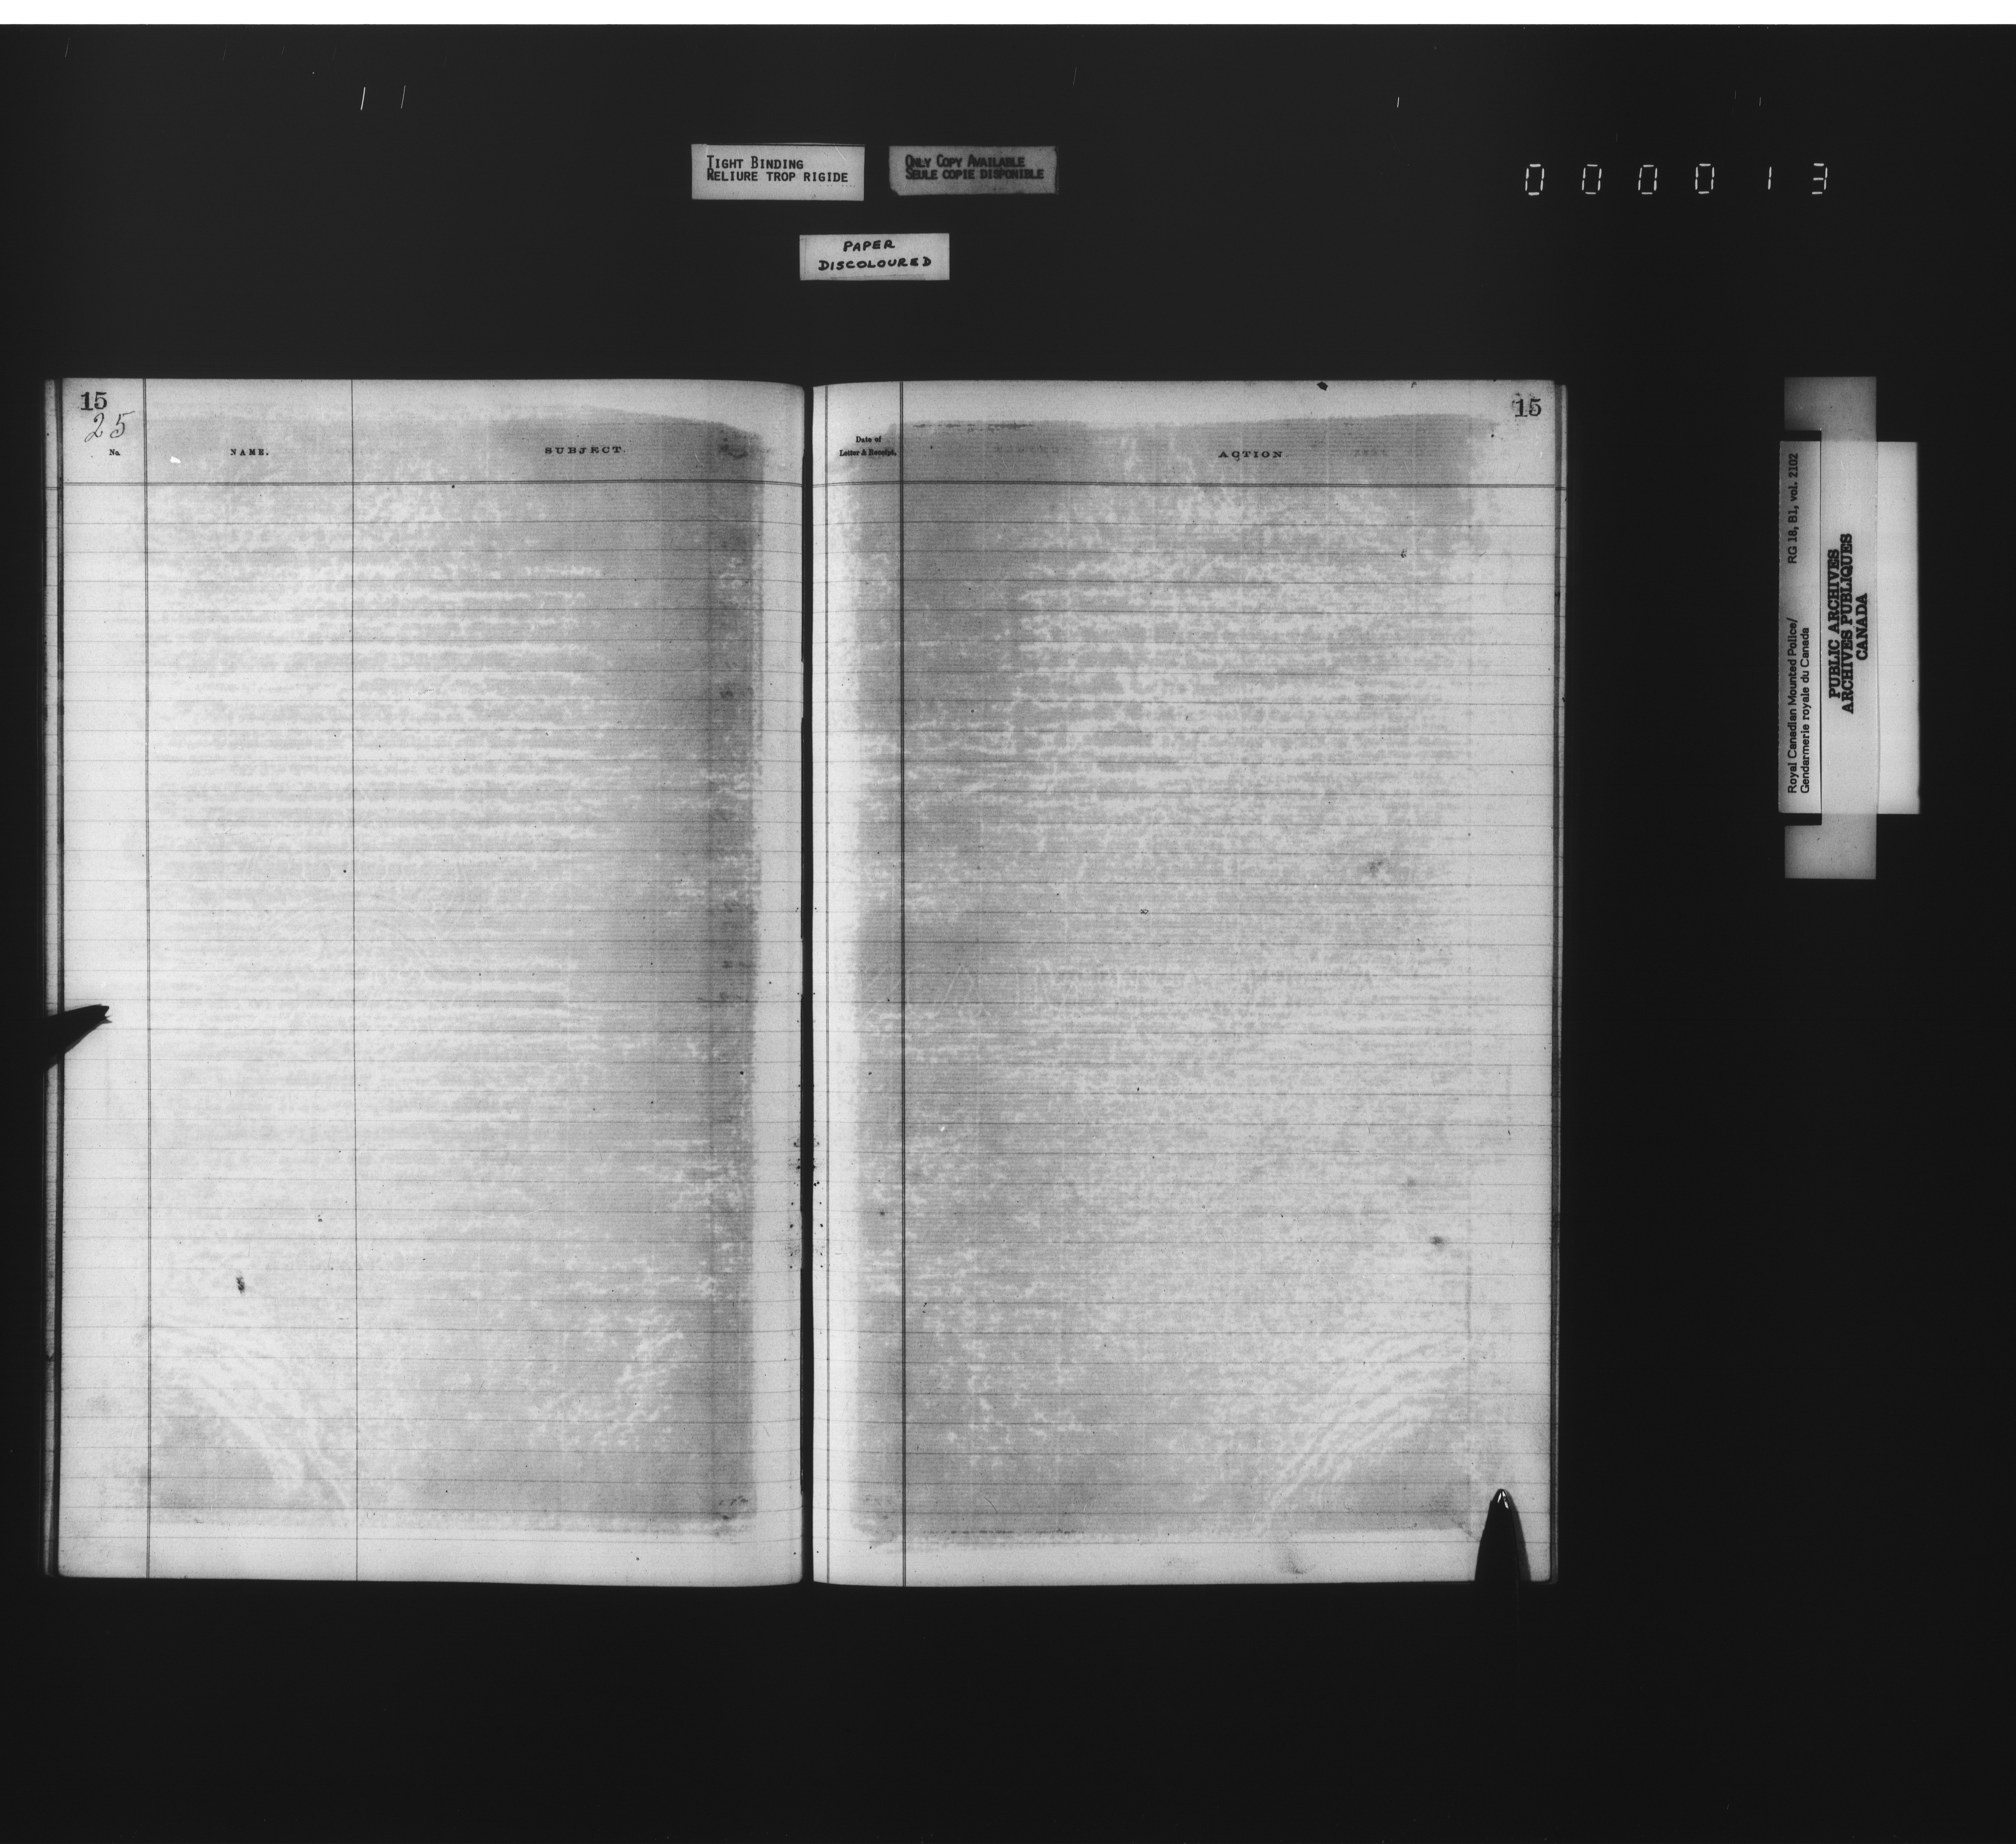 TIGHT BINDING
RELIURE TROP RIGIDE
ONLY COPY AVAILABLE
SEULE COPIE DISPONIBLE
000013
PAPER
DISCOLOURED
15
25
No.
NAME.
SUBJECT.
Date of
Letter & Receipt.
ACTION
15
Royal Canadian Mounted Police/ RG 18, B1, vol. 2102
Gendarmerie royale du Canada
PUBLIC ARCHIVES
ARCHIVES PUBLIQUES
CANADA